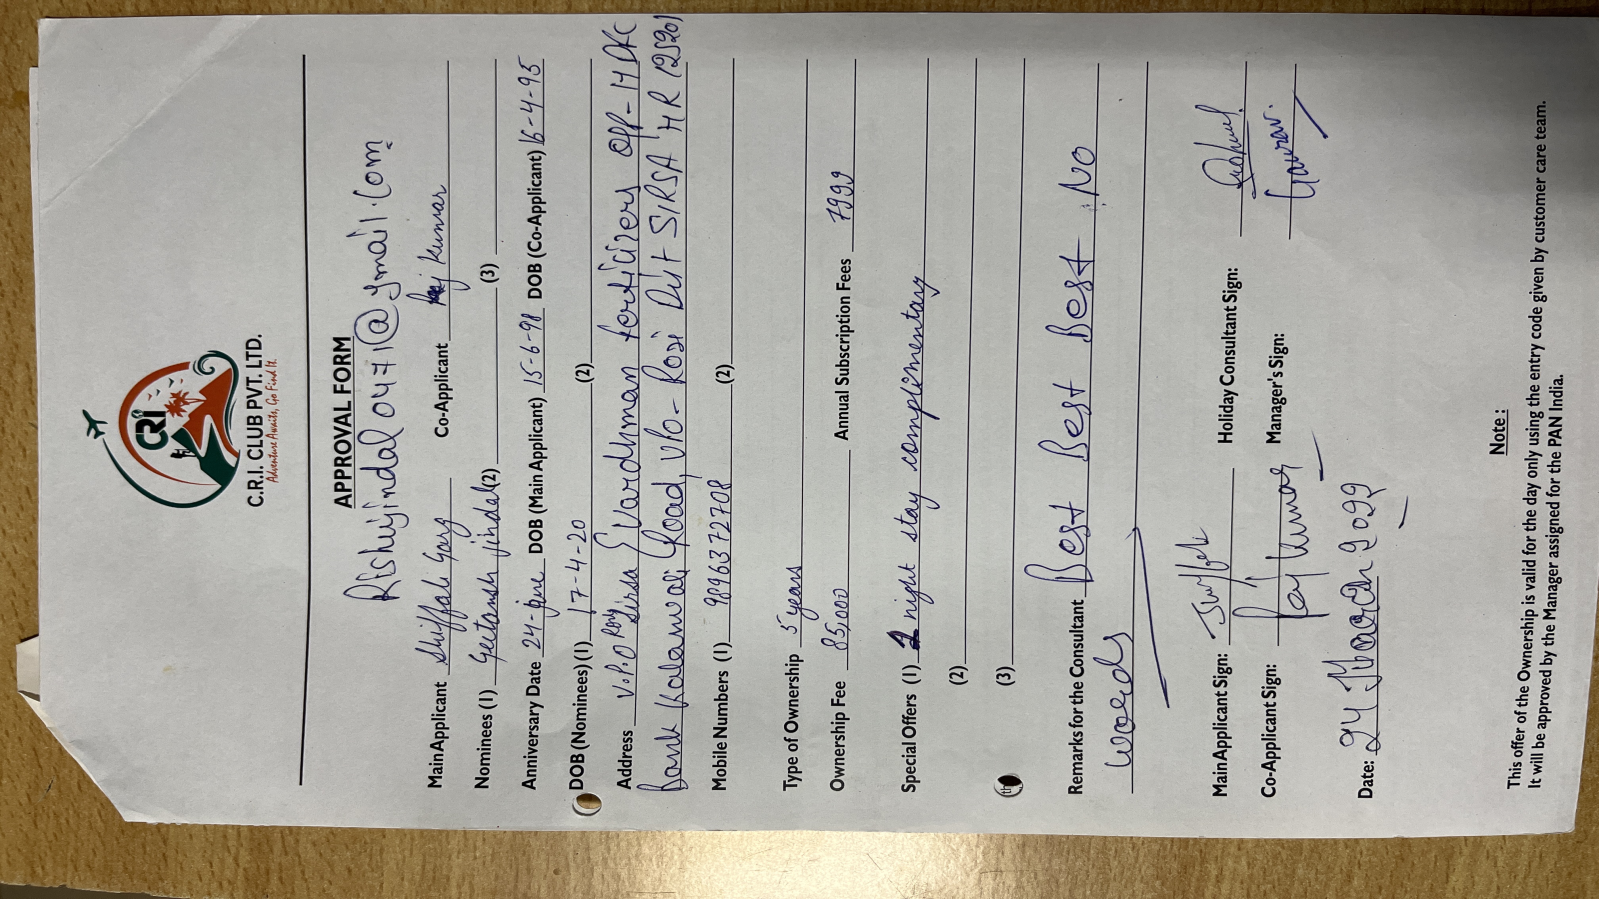 CRI
C.R.I. CLUB PVT. LTD.
Adventure Awaits, Go Find It.
APPROVAL FORM
Rishujindal0471@gmail.com
Main Applicant Shiffali Garg Co-Applicant Raj Kumar
Nominees (1) Geetansh jindal (2) (3)
Anniversary Date 24-june DOB (Main Applicant) 15-6-98 DOB (Co-Applicant) 16-4-95
DOB (Nominees) (1) 17-4-20 (2)
Address V.P.O Rori Sirsa { Vardhman fertilizers Opp- HDFC
Bank Kalanwali Road, V/O- Rori Dist SIRSA HR 125201
Mobile Numbers (1) 9896372708 (2)
Type of Ownership 5 years
Ownership Fee 85,000 Annual Subscription Fees 7999
Special Offers (1) 2 night stay complimentary
(2)
(3)
Remarks for the Consultant Best Best Best No
words
Main Applicant Sign: Shiffali Holiday Consultant Sign:
Co-Applicant Sign: Raj Kumar Manager's Sign: Gaurav
Date: 24 March
Note :
This offer of the Ownership is valid for the day only using the entry code given by customer care team.
It will be approved by the Manager assigned for the PAN India.